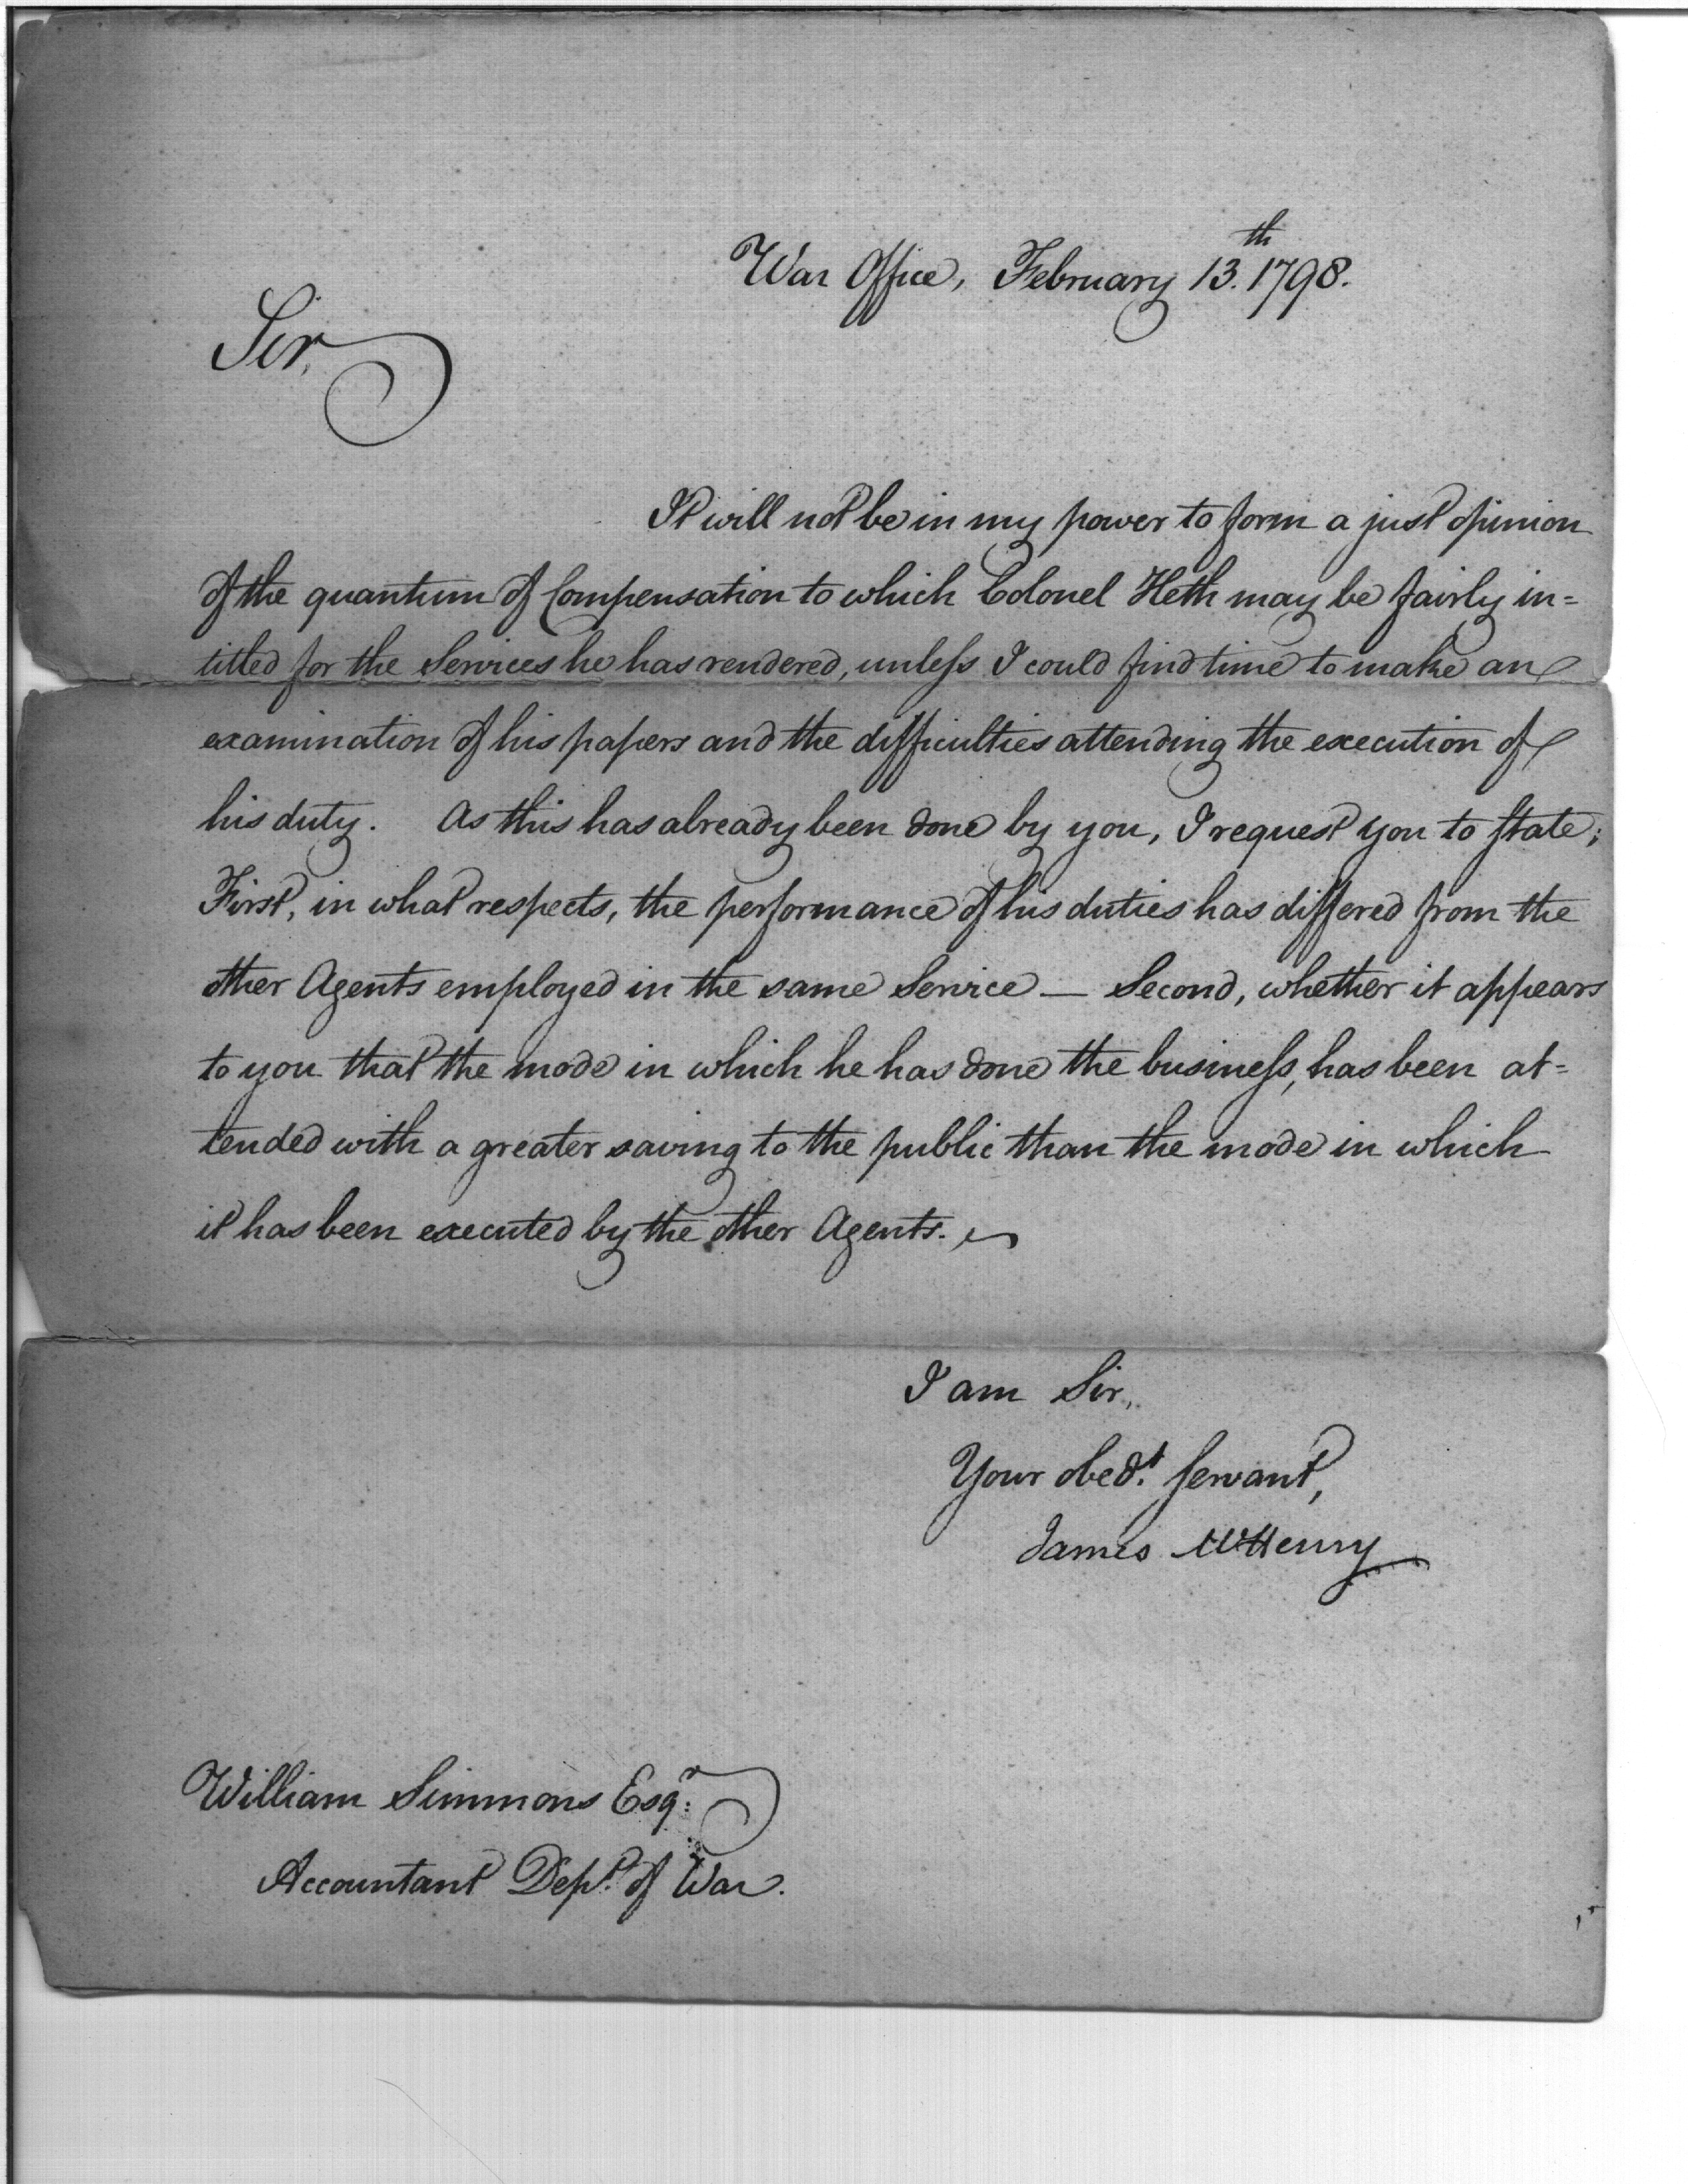 War Office, February 13.th 1798.
Sir,
It will not be in my power to form a just opinion
of the quantum of Compensation to which Colonel Heth may be fairly in=
titled for the Services he has rendered, unless I could find time to make an
examination of his papers and the difficulties attending the execution of
his duty. As this has already been done by you, I request you to state;
First, in what respects, the performance of his duties has differed from the
other Agents employed in the same Service — Second, whether it appears
to you that the mode in which he has done the business, has been at=
tended with a greater saving to the public than the mode in which
it has been executed by the other Agents.
I am Sir,
Your obed.t servant,
James McHenry
William Simmons Esq.r
Accountant Dep.t of War.